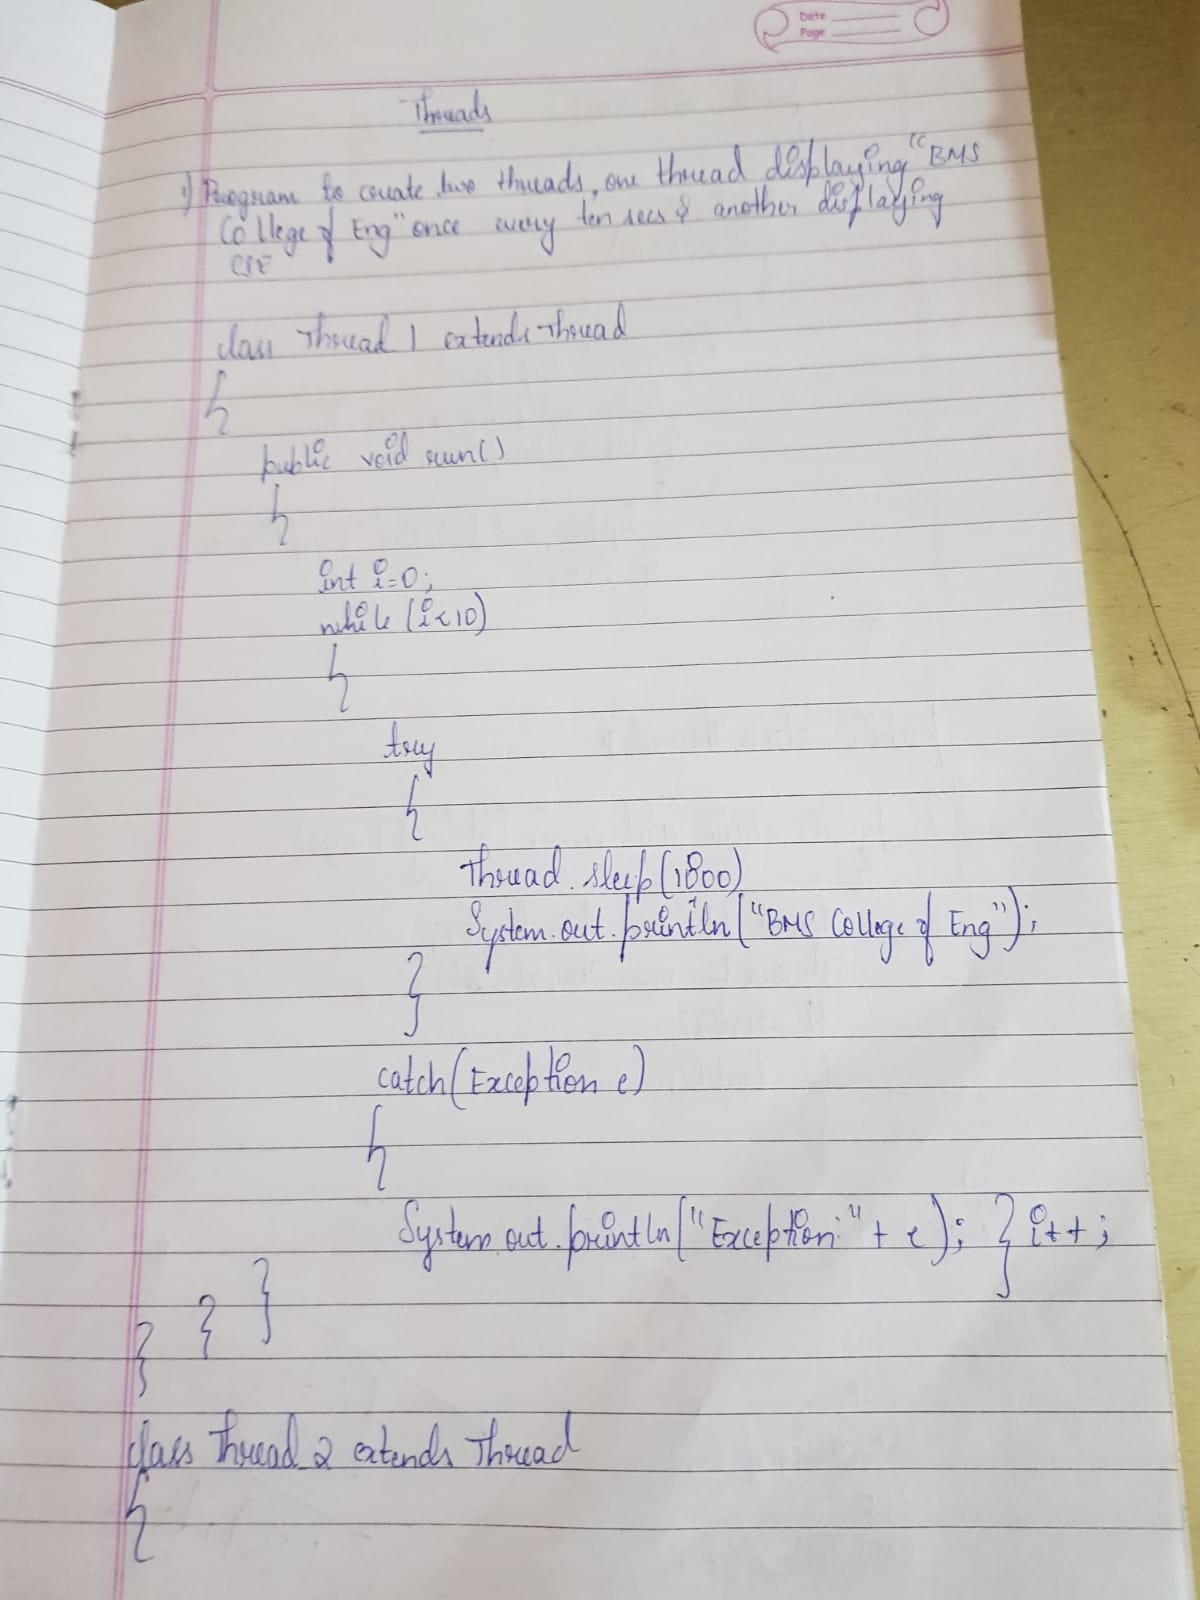 Date
Page
Threads
1) Program to create two threads, one thread displaying "BMS
College of Eng" once every ten secs & another displaying
CSE
class Thread 1 extends Thread
{
public void run()
{
int i=0;
while (i<10)
{
try
{
Thread.sleep(1800)
System.out.println("BMS College of Eng");
}
catch(Exception e)
{
System.out.println("Exception:" + e); } i++;
}
}
}
class Thread 2 extends Thread
{